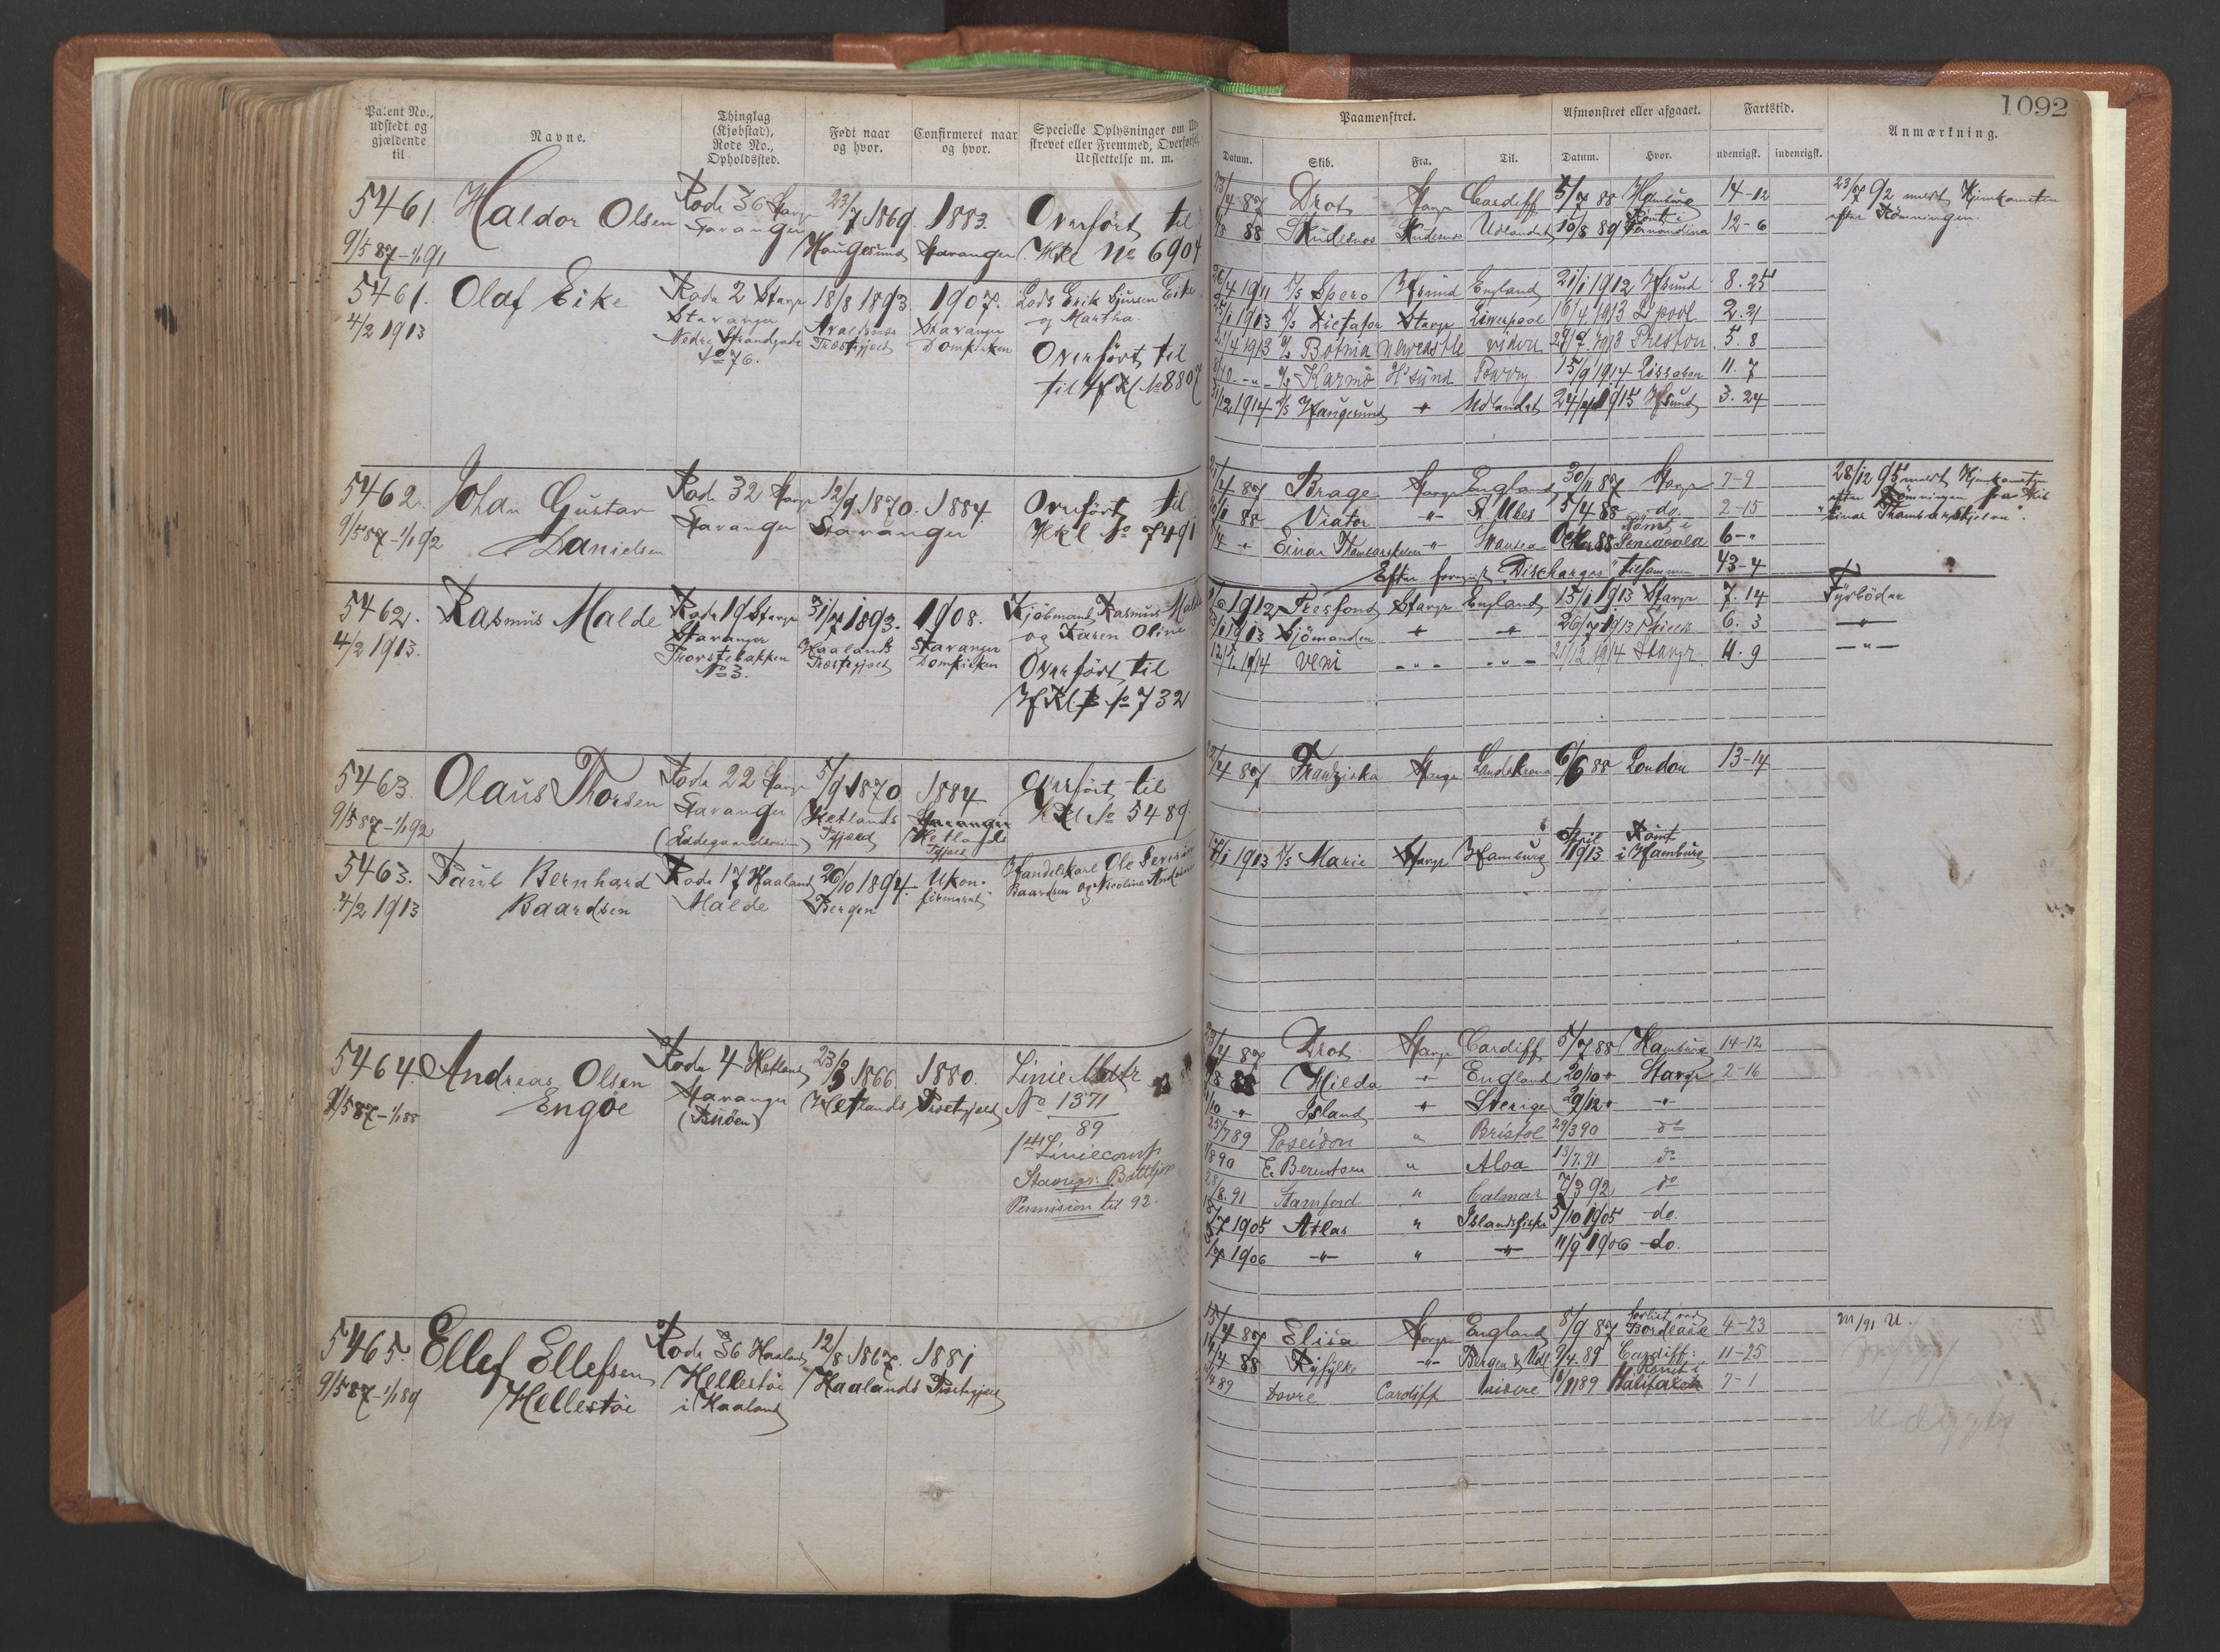 Patent No., udstedt og gjældende til
Navne.
Thinglag (Kjøbstad), Rode No., Opholdssted.
Født naar og hvor.
Confirmeret naar og hvor.
Specielle Oplysninger om
strevet eller Fremmed, Overførsel,
Udslettelse m. m.
1092
Paamønstret.
Afmønstret eller afgaaet.
Fartstid.
Anmærkning.
Datum.
Skib.
Fra.
Til.
Datum.
Hvor.
udenrigst.
indenrigst.
5461.
9/5 87 - 1/1 91
Haldor Olsen
Rode 36 Stavgr
Stavanger
23/7 1869.
Haugesund
1883.
Stavanger
Overført til
Hkl No 6904
23/4 87 Drot Stavgr Cardiff 5/7 88 Hamburg 14-12
88 Skudesnes Skudesnes Udlandet 10/8 89 Rømt i Fernandina 12-6
23/7 92 meldt Hjemkomsten
efter Rømningen.
5461.
4/2 1913
Olaf Eike
Rode 2 Stavgr
Stavanger
Nedre Strandgade
No 76.
18/8 1893.
Avaldsnes
Præstegjeld
1907.
Stavanger
Domkirken
Lods Erik Eike
og Martha.
Overført til
til HfKl No 8807
26/4 1911 D/S Spero Hsund England 21/1 1912 Hsund 8. 25
1913 D/S Dictator Stavgr Liverpool 16/4 1913 Lpool 2. 21
21/4 1913 D/S Botnia Newcastle videre 29/9 1913 Preston 5. 8
D/S Karmø H'sund 15/9 1914 Lissabon 11. 7
12 1914 D/S Haugesund " Udlandet 24/4 1915 Hsund 3. 24
5462.
9/5 87 - 1/1 92
Johan Gustav
Danielsen
Rode 32 Stavgr
Stavanger
12/9 1870.
Stavanger
1884.
Overført til
Hkl No 7491
4 87 Brage Stavgr England 30/11 87 Stavgr 7-9
88 Viator " St Ubes 5/4 88 do. 2-15
Einar Thambarskjelver " Swansea Oktbr 88 Rømt i Pensacola 6-"
Efter foreviste Discharges tilsammen 43-4
28/12 95 meldt Hjemkomsten
efter Rømningen fra Skib
"Einar Thambarskjelver".
5462.
4/2 1913.
Rasmus Malde
Rode 19 Stavgr
Stavanger
Thorstebakken
No 3.
31/7 1893.
Haalands
Præstegjeld
1908.
Stavanger
Domkirken
Kjøbmand Rasmus Malde
og Karen Oline
Overført til
HfKl No 732
1912 Presfond Stavgr England 15/1 1913 Stavgr 7. 14
1913 Sjømanden " " 26/7 1913 6. 3
1914 Veni " " 21/12 1914 Stavgr. 11. 9
Fyrbøder
"
"
5463.
9/5 87 - 1/1 92
Olaus Thorsen
Rode 22 Stavgr
Stavanger
5/9 1870
Hetlands
Pgjeld
1884
Stavanger
Hetlands
Pgjeld
Overført til
HKl No 5489.
4 87 Franziska Stavgr Landskrona 6/6 88 London 13-14
5463.
4/2 1913
Paul Bernhard
Baardsen
Rode 17 Haaland
Malde
26/10 1894.
Bergen
Ukon-
firmeret
Handelskarl Ole Severin
Baardsen og Nicoline
1913 D/S Marie Stavgr Hamburg April 1913 Rømt i Hamburg
5464.
9/5 87 - 1/1 88
Andreas Olsen
Engøe
Rode 4 Hetland
Stavanger
(Buøen)
23/3 1866.
Hetlands Præstegjeld
1880.
Linie Matr
No 1371
89
Liniecomp
Stavgr: Battljon
Permision til 92.
23/4 87 Drot Stavgr Cardiff 5/7 88 Hamburg 14-12
8 88 Hilda " England 20/10 " Stavgr 2-16
10 " Island " Sverige 29/12 " "
25/7 89 Poseidon " Bristol 29/3 90 do
1890 E. Berentsen " Aloa 13/7. 91 do
28/8. 91 Stamford " Calmar 7/3 92 do
7 1905 Atlas " Islandsfiske 5/10 1905 do.
7 1906 " " " 11/9 1906 do.
5465.
9/5 87 - 1/1 89
Ellef Ellefsen
Hellestøe
Rode 36 Haaland
Hellestøe
i Haaland
12/8 1867.
Haalands Præstegjeld
1881
15/4 87 Elisa Stavgr England 8/9 87 forlist ved Bordeaux 4-23
4 88 Ryfylke " Bergen & Udl 9/4. 89 Cardiff: 11-25
4 89 Dovre Cardiff videre 89 Rømt i Halifax 7-1
/91 U.